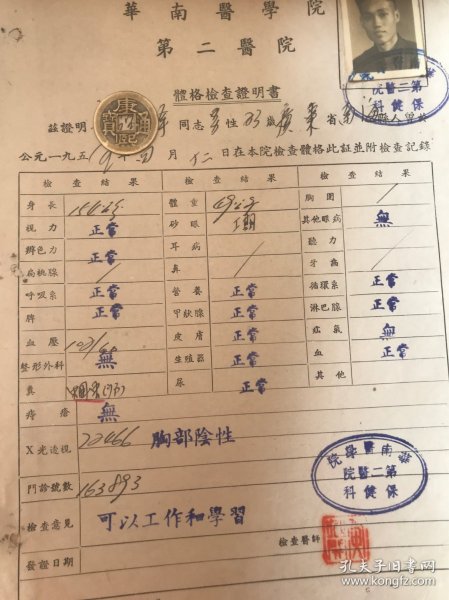 華南醫學院
第二醫院
體格檢查證明書
茲證明 同志男性 歲廣東省南海縣人曾於
公元一九五 年 月 仁日在本院檢查體格此証並附檢查記錄
檢查結果 檢查結果 檢查結果
身長 體重 胸圍 /
視力 正常 砂眼 其他眼病 無
辨色力 正常 耳病 / 聽力 /
扁桃腺 / 鼻 / 牙齒 /
呼吸系 正常 營養 正常 循環系 正常
脾 正常 甲狀腺 正常 淋巴腺 正常
血壓 皮膚 正常 疝氣 無
整形外科 無 生殖器 正常 血 正常
糞 尿 正常 其他
痔瘡 無
X光透視 22466 胸部陰性
門診號數 163893
檢查意見 可以工作和學習
檢查醫師
發證日期
華南醫學院
第二醫院
保健科
華南醫學院
第二醫院
保健科
康熙通寶
孔夫子旧书网
www.kongfz.com